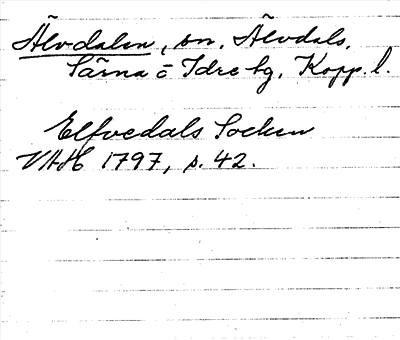 Älvdalen, sn. Älvdals,
Särna o Idre tg, Kopp. l.
Elfvedals Socken
VAH 1797, s. 42.